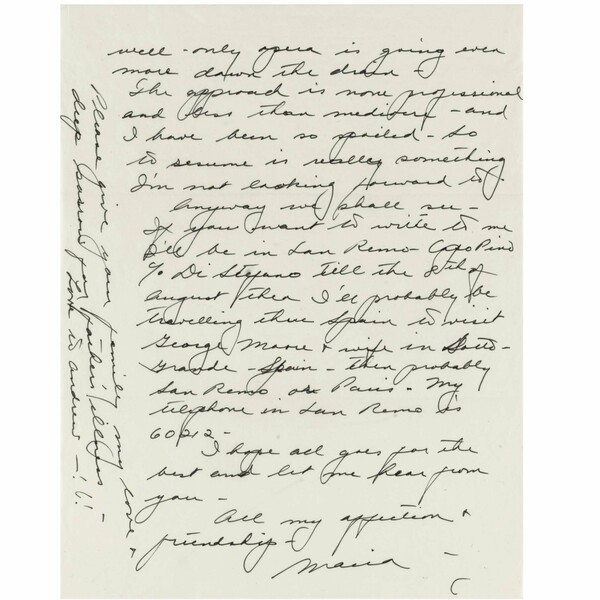 well - only opera is going even
more down the drain -
The approach is none professional
and less than mediocre - and
I have been so spoiled - so
to resume is really something
I'm not looking forward to -
Anyway we shall see -
If you want to write to me
I'll be in San Remo - Capo Pino
c/o Di Stefano till the 8th of
August then I'll probably be
travelling thru Spain to visit
George Moore + wife in Soto-
Grande - Spain - then probably
San Remo or Paris - My
telephone in San Remo is
60212 -
I hope all goes for the
best and let me hear from
you -
All my affection +
friendship -
Maria -
Please give your family my love +
deep for father's illness -
Love to Andrew - !